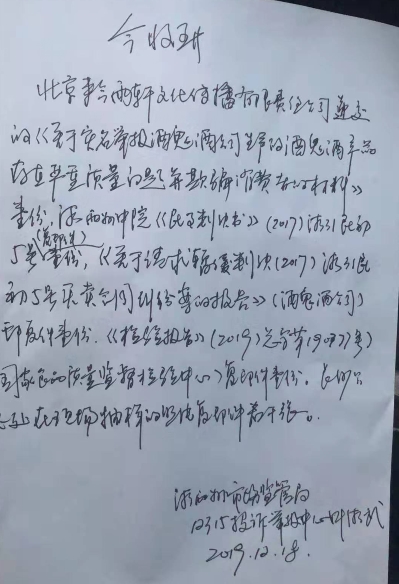 今收到
北京来今雨轩文化传播有限责任公司递交
的《关于实名举报酒鬼酒公司生产的酒鬼酒产品
存在严重质量问题并欺骗消费者的材料》
壹份，湘西州中院《民事判决书》(2017)湘31民初
5号(复印件)壹份，《关于请求 判决(2017)湘31民
初5号买卖合同纠纷案的报告》(酒鬼酒公司)
印原件壹份.《检验报告》(2019)总字第19087号)
国家食品质量监督检验中心)复印件壹份。长沙公
证处在现场抽样的照片复印件若干张。
湘西州市场监管局
12315投诉举报中心
2019.12.18.